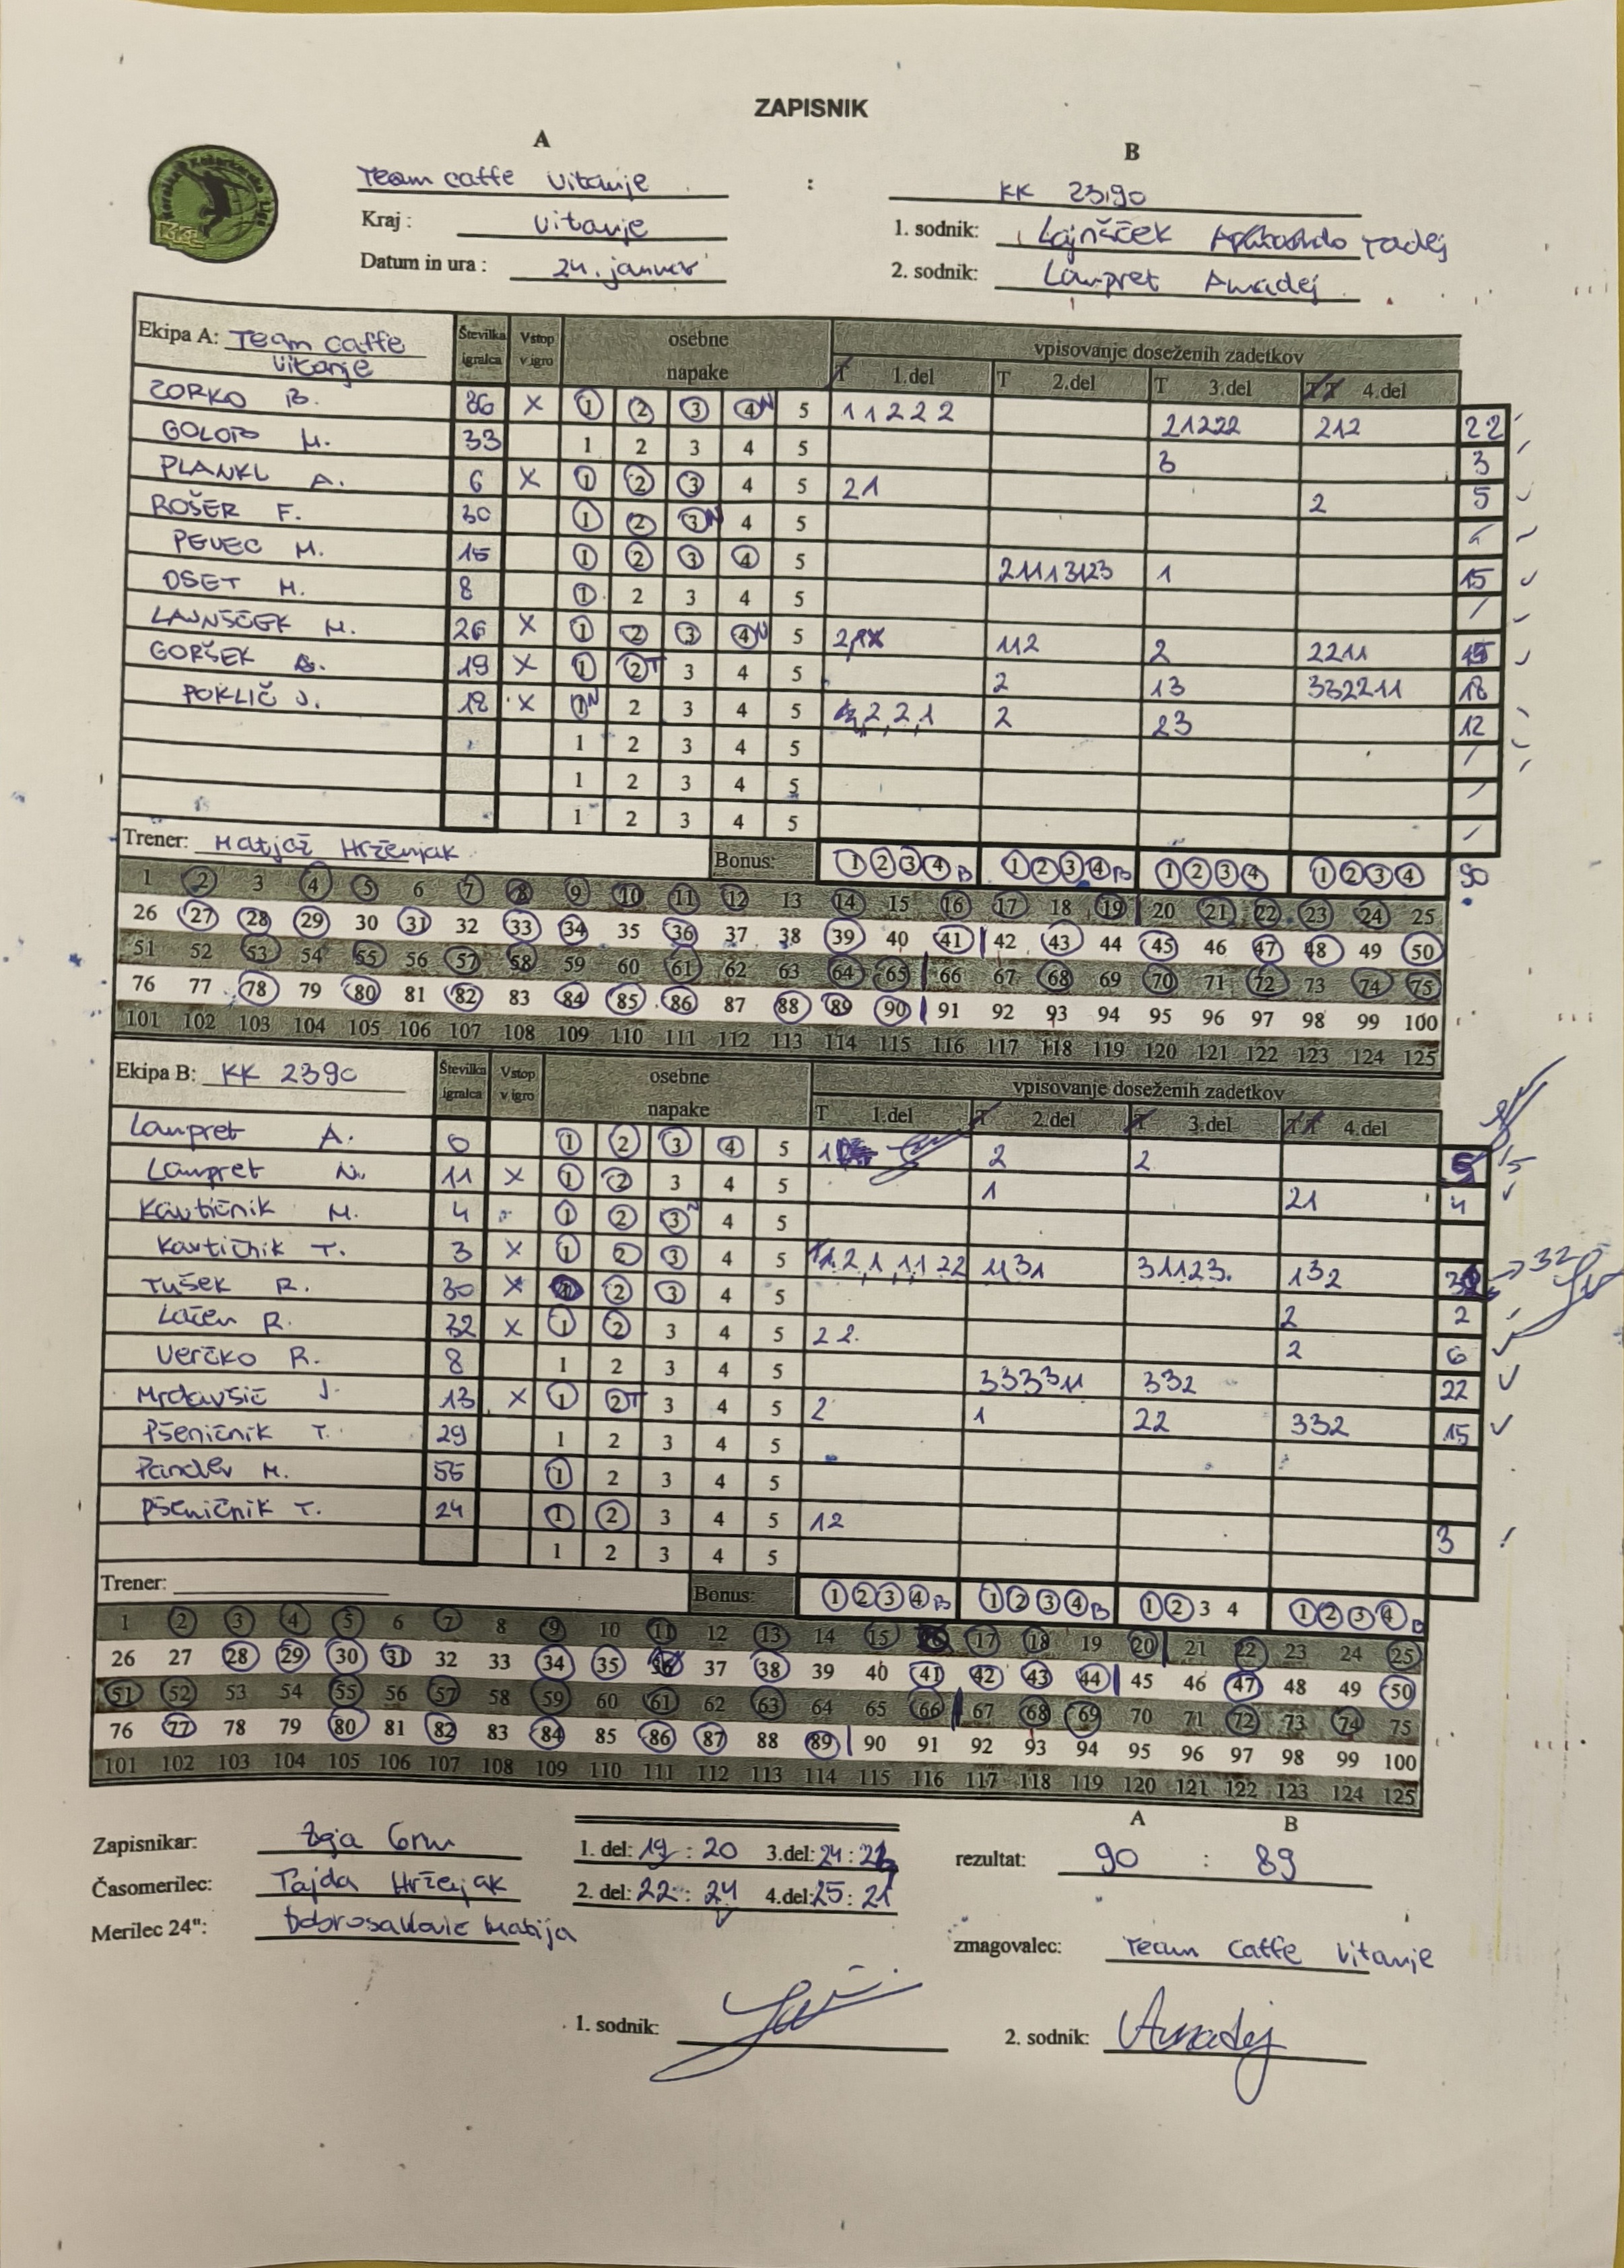 ZAPISNIK
A B
Team caffe Vitanje : KK 23,90
Kraj : Vitanje 1. sodnik: Lajnšček Tadej
Datum in ura : 24. januar 2. sodnik: Lampret Amadej
Ekipa A: Team caffe Vitanje Številka igralca Vstop v igro osebne napake vpisovanje doseženih zadetkov
T 1.del T 2.del T 3.del TT 4.del
ZORKO B. 86 X 1 2 3 4N 5 11222 21222 212 22
GOLOB M. 33 1 2 3 4 5 3 3
PLANKL A. 6 X 1 2 3 4 5 21 2 5
ROŠER F. 30 1 2 3N 4 5
PEVEC M. 15 1 2 3 4 5 21113123 1 15
OSET M. 8 1 2 3 4 5 /
LAJNŠČEK M. 26 X 1 2 3 4N 5 112 2 2211 15
GORŠEK 19 X 1 2T 3 4 5 2 13 332211 18
POKLIČ J. 18 X 1N 2 3 4 5 2,2,1 2 23 12
1 2 3 4 5 /
1 2 3 4 5 /
1 2 3 4 5 /
Trener: Matjaž Hrženjak Bonus: 1 2 3 4 B 1 2 3 4 B 1 2 3 4 1 2 3 4 90
1 2 3 4 5 6 7 8 9 10 11 12 13 14 15 16 17 18 19 20 21 22 23 24 25
26 27 28 29 30 31 32 33 34 35 36 37 38 39 40 41 42 43 44 45 46 47 48 49 50
51 52 53 54 55 56 57 58 59 60 61 62 63 64 65 66 67 68 69 70 71 72 73 74 75
76 77 78 79 80 81 82 83 84 85 86 87 88 89 90 91 92 93 94 95 96 97 98 99 100
101 102 103 104 105 106 107 108 109 110 111 112 113 114 115 116 117 118 119 120 121 122 123 124 125
Ekipa B: KK 2390 Številka igralca Vstop v igro osebne napake vpisovanje doseženih zadetkov
T 1.del T 2.del T 3.del TT 4.del
Lampret A. 0 1 2 3 4 5 1 2 2 5
Lampret N. 11 X 1 2 3 4 5 1 21 4
Kavtičnik M. 4 1 2 3N 4 5
Kavtičnik T. 3 X 1 2 3 4 5 1131 31123 132 → 32
Tušek R. 30 X 1 2 3 4 5 2 2
Lačen R. 32 X 1 2 3 4 5 22 2 6
Verčko R. 8 1 2 3 4 5 333311 332 22
Mrdavšič J. 13 X 1 2T 3 4 5 2 1 22 332 15
Pšeničnik T. 29 1 2 3 4 5
Pandev M. 55 1 2 3 4 5
Pšeničnik T. 24 1 2 3 4 5 12 3
1 2 3 4 5
Trener: Bonus: 1 2 3 4 B 1 2 3 4 B 1 2 3 4 1 2 3 4 B
1 2 3 4 5 6 7 8 9 10 11 12 13 14 15 16 17 18 19 20 21 22 23 24 25
26 27 28 29 30 31 32 33 34 35 36 37 38 39 40 41 42 43 44 45 46 47 48 49 50
51 52 53 54 55 56 57 58 59 60 61 62 63 64 65 66 67 68 69 70 71 72 73 74 75
76 77 78 79 80 81 82 83 84 85 86 87 88 89 90 91 92 93 94 95 96 97 98 99 100
101 102 103 104 105 106 107 108 109 110 111 112 113 114 115 116 117 118 119 120 121 122 123 124 125
A B
Zapisnikar: 1. del: 19 : 20 3.del: 24 : rezultat: 90 : 89
Časomerilec: Tajda Hrženjak 2. del: 22 : 24 4.del: 25 : 21
Merilec 24": Dobrosavlovic Matija zmagovalec: Team Caffe Vitanje
1. sodnik: 2. sodnik: Amadej